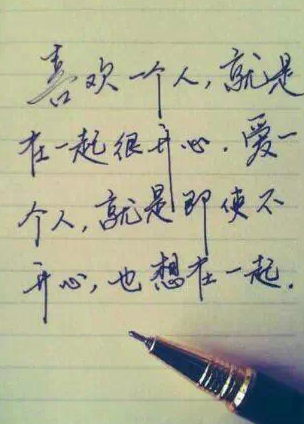 喜欢一个人，就是
在一起很开心．爱一
个人，就是即使不
开心，也想在一起．